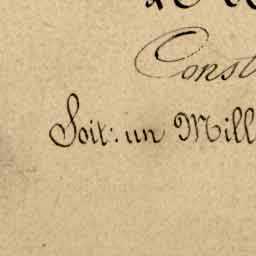 Const
Soit: un Mill